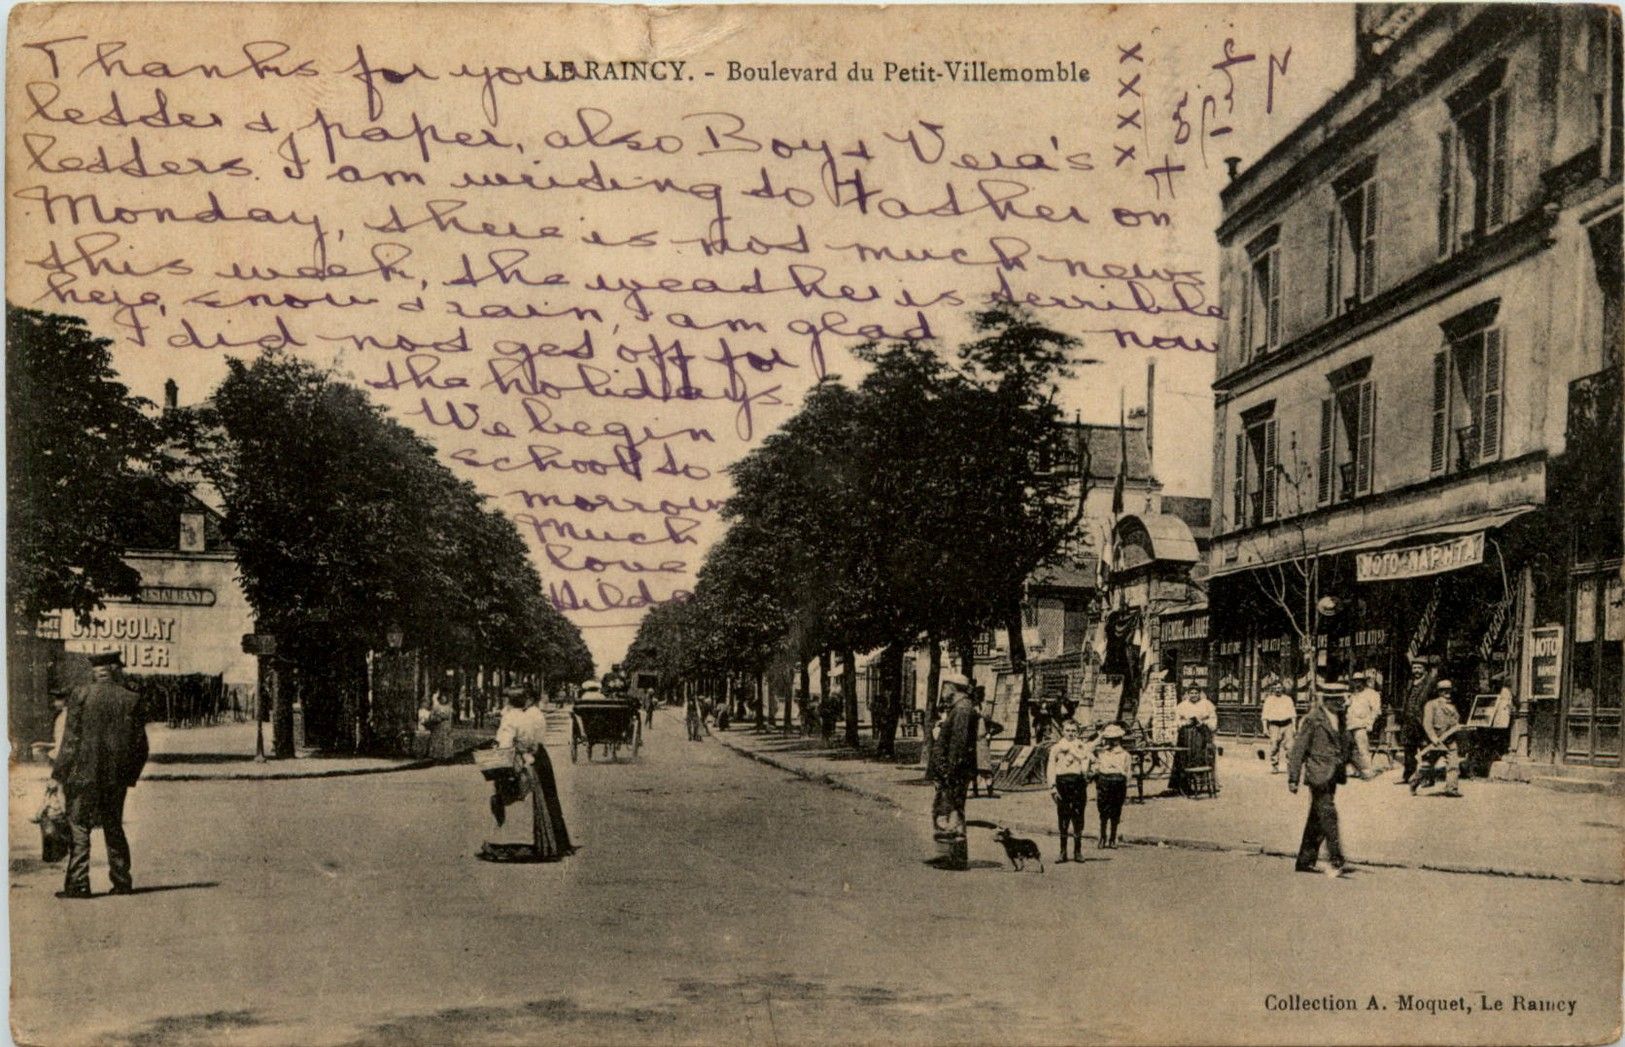 LE RAINCY. - Boulevard du Petit-Villemomble
Thanks for your
letter & paper, also Boy & Vera's
letters. I am writing to Father on
Monday, there is not much news
this week, the weather is terrible
here, snow & rain, I am glad now
I did not get off for
the holidays.
We begin
school to
morrow
Much
love
Hilda
x x x x
for
RESTAURANT
CHOCOLAT
MENIER
MOTO-NAPHTA
MOTO
Collection A. Moquet, Le Raincy